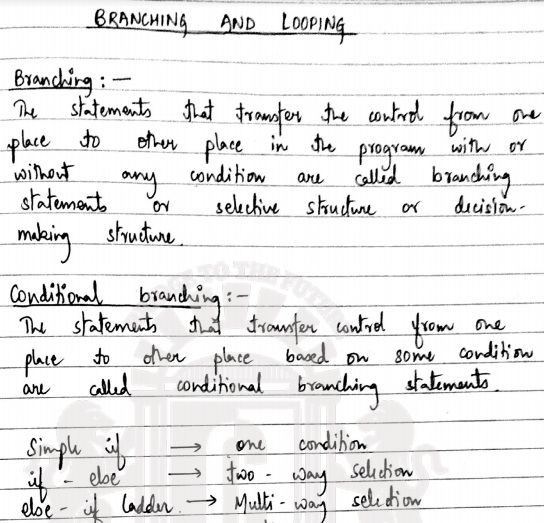 BRANCHING AND LOOPING
Branching : —
The statements that transfer the control from one
place to other place in the program with or
without any condition are called branching
statements or selective structure or decision-
making structure.
Conditional branching :-
The statements that transfer control from one
place to other place based on some condition
are called conditional branching statements.
Simple if → one condition
if - else → two - way selection
else - if ladder → Multi - way selection